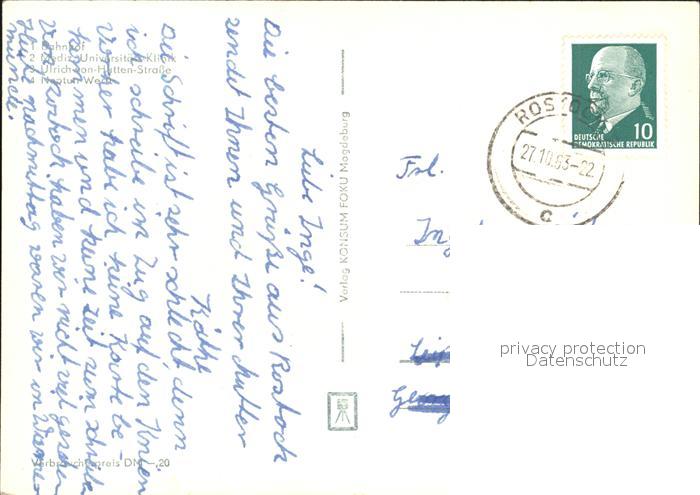 1 Bahnhof
2 Mediz. Universitäts-Klinik
3 Ulrich-von-Hutten-Straße
4 Neptun Werft
Liebe Inge!
Die besten Grüße aus Rostock
sendet Ihnen und Ihrer Mutter
Käthe
Die Schrift ist sehr schlecht, denn
ich schreibe im Zug auf den Knien
Vorher habe ich keine Karte be-
kommen und keine Zeit zum schreiben
Von Rostock haben wir nicht viel gesehen
Heute nachmittag waren wir in Warne-
münde.
Verbraucherpreis DM -,20
Verlag KONSUM FOKU Magdeburg
ROSTOCK
27.10.63-22
c
DEUTSCHE
DEMOKRATISCHE REPUBLIK
10
Frl.
privacy protection
Datenschutz